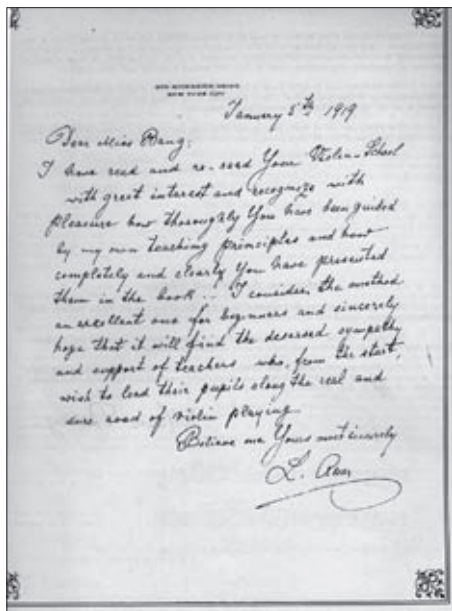 NEW YORK CITY
January 5th 1919
Dear Miss Bang:
I have read and re-read Your Violin-School
with great interest and recognize with
pleasure how thoroughly You have been guided
by my own teaching principles and how
completely and clearly You have presented
them in the book... I consider the method
an excellent one for beginners and sincerely
hope that it will find the deserved sympathy
and support of teachers who, from the start,
wish to lead their pupils along the real and
sure road of violin playing.
Believe me Yours most sincerely
L. Auer